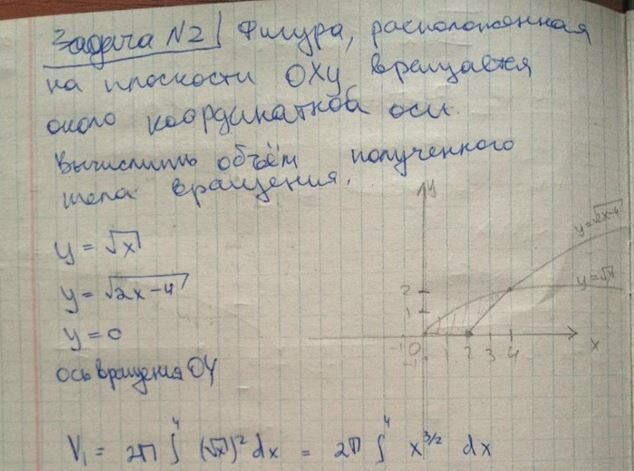 Задача №2 | Фигура, расположенная
на плоскости OXY вращается
около координатной оси.
Вычислить объём полученного
тела вращения.
y = √x
y = √2x-4
y = 0
ось вращения OY
y
y=√2x-4
y=√x
2
1
-1 0 1 2 3 4 x
-1
V₁ = 2π ∫⁴ (√x)² dx = 2π ∫⁴ x^3/2 dx